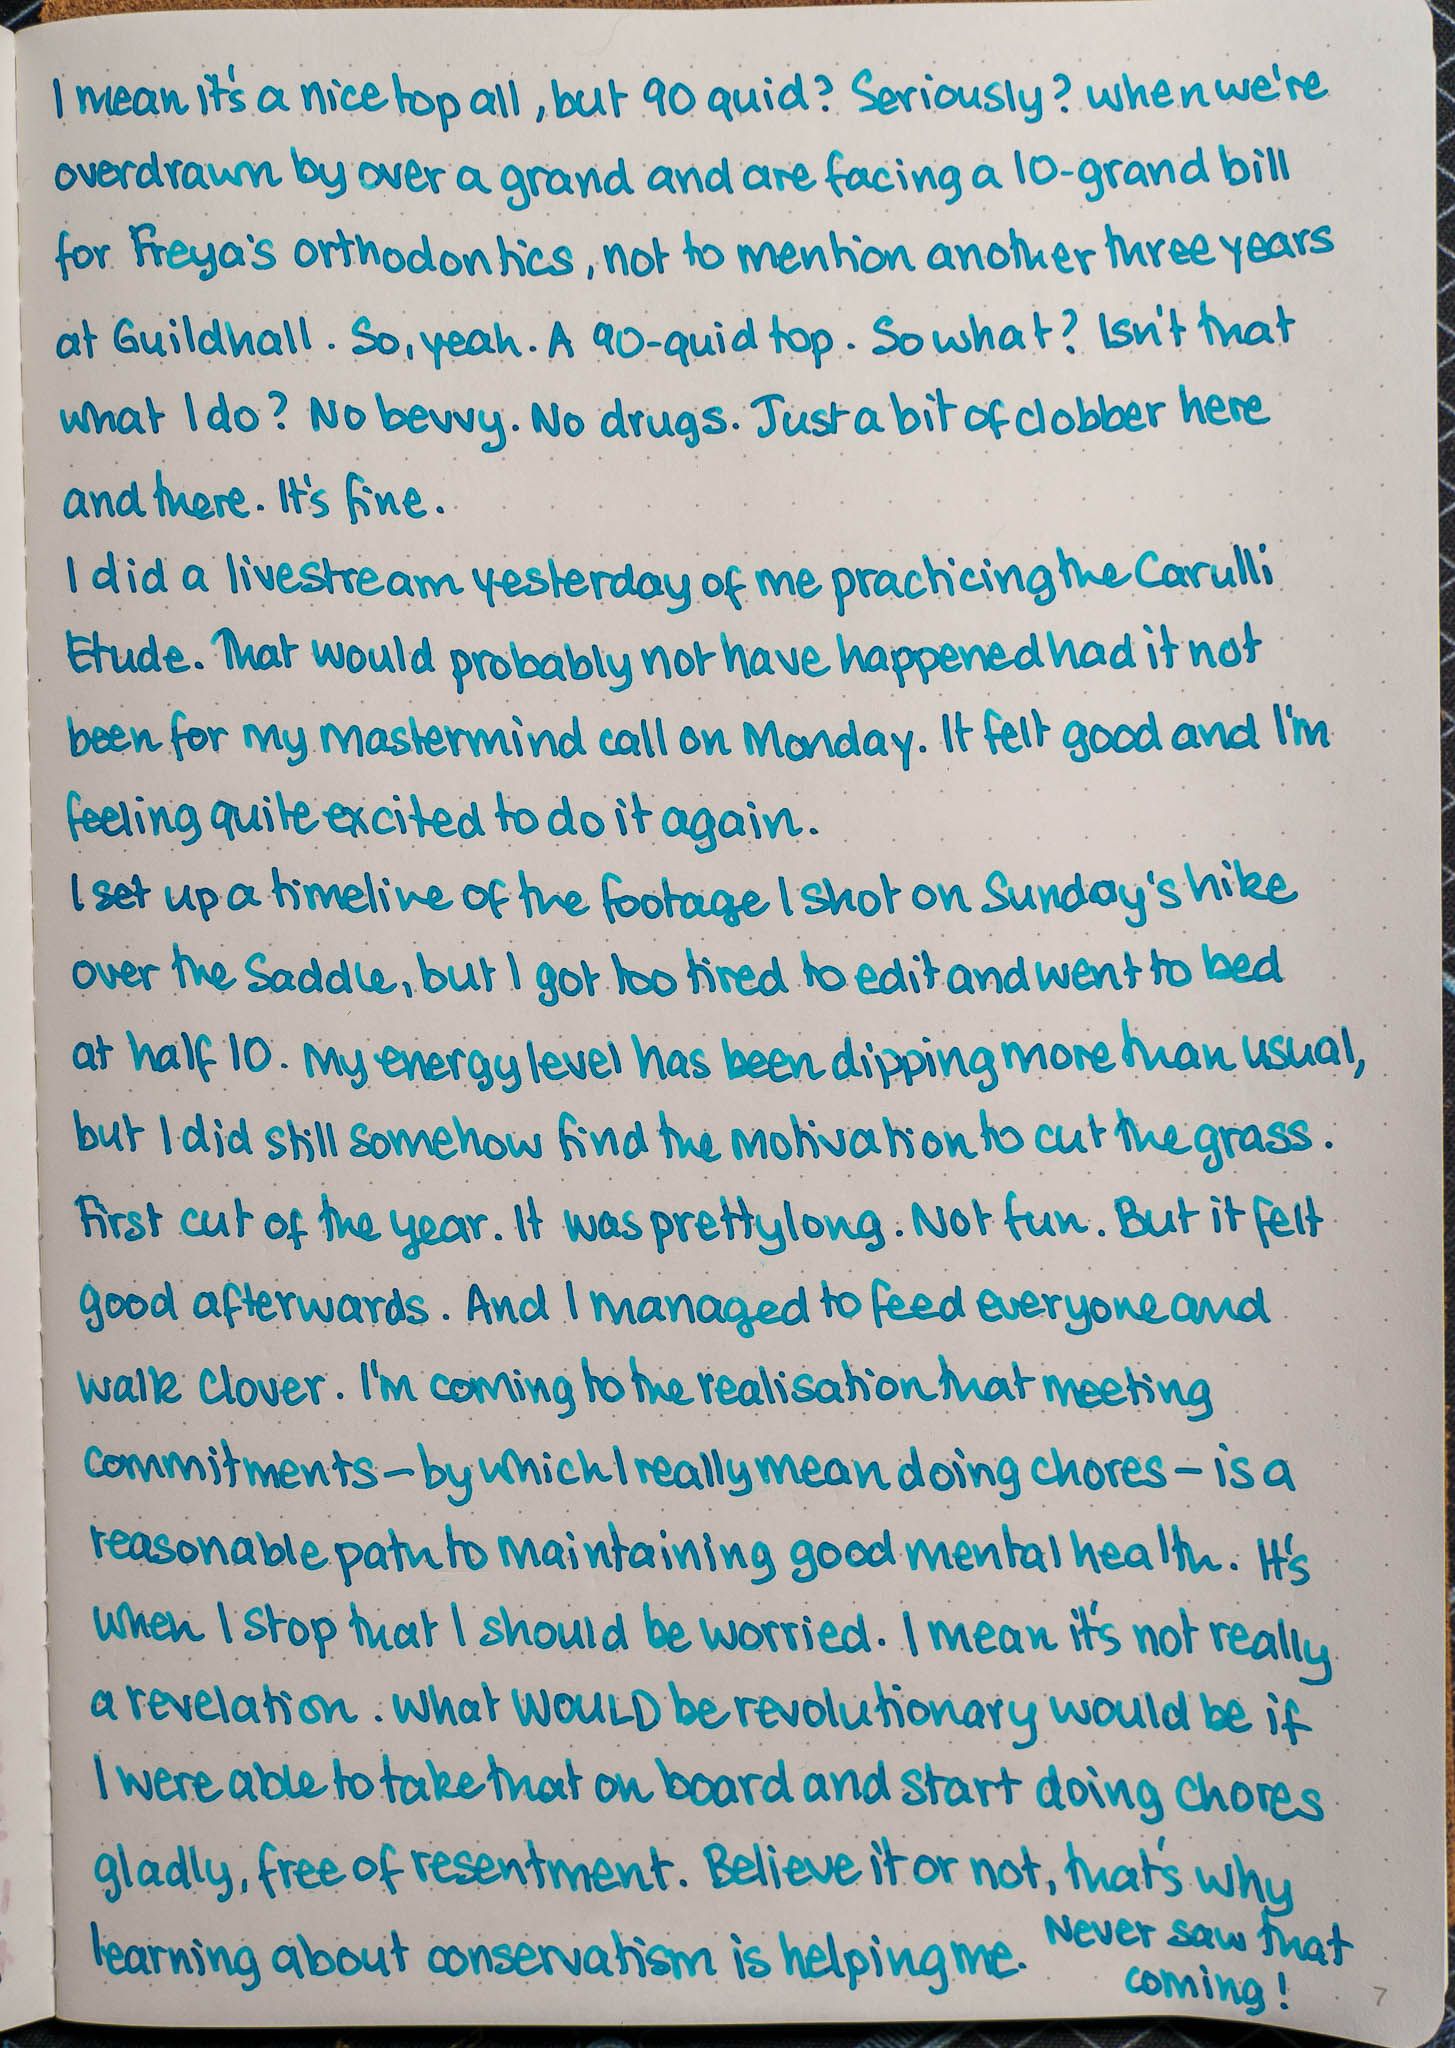 I mean it's a nice top all, but 90 quid? Seriously? When we're
overdrawn by over a grand and are facing a 10-grand bill
for Freya's orthodontics, not to mention another three years
at Guildhall. So, yeah. A 90-quid top. So what? Isn't that
what I do? No bevvy. No drugs. Just a bit of clobber here
and there. It's fine.
I did a livestream yesterday of me practicing the Carulli
Etude. That would probably not have happened had it not
been for my mastermind call on Monday. It felt good and I'm
feeling quite excited to do it again.
I set up a timeline of the footage I shot on Sunday's hike
over the Saddle, but I got too tired to edit and went to bed
at half 10. My energy level has been dipping more than usual,
but I did still somehow find the motivation to cut the grass.
First cut of the year. It was pretty long. Not fun. But it felt
good afterwards. And I managed to feed everyone and
walk Clover. I'm coming to the realisation that meeting
commitments – by which I really mean doing chores – is a
reasonable path to maintaining good mental health. It's
when I stop that I should be worried. I mean it's not really
a revelation. What WOULD be revolutionary would be if
I were able to take that on board and start doing chores
gladly, free of resentment. Believe it or not, that's why
learning about conservatism is helping me. Never saw that
coming!
7